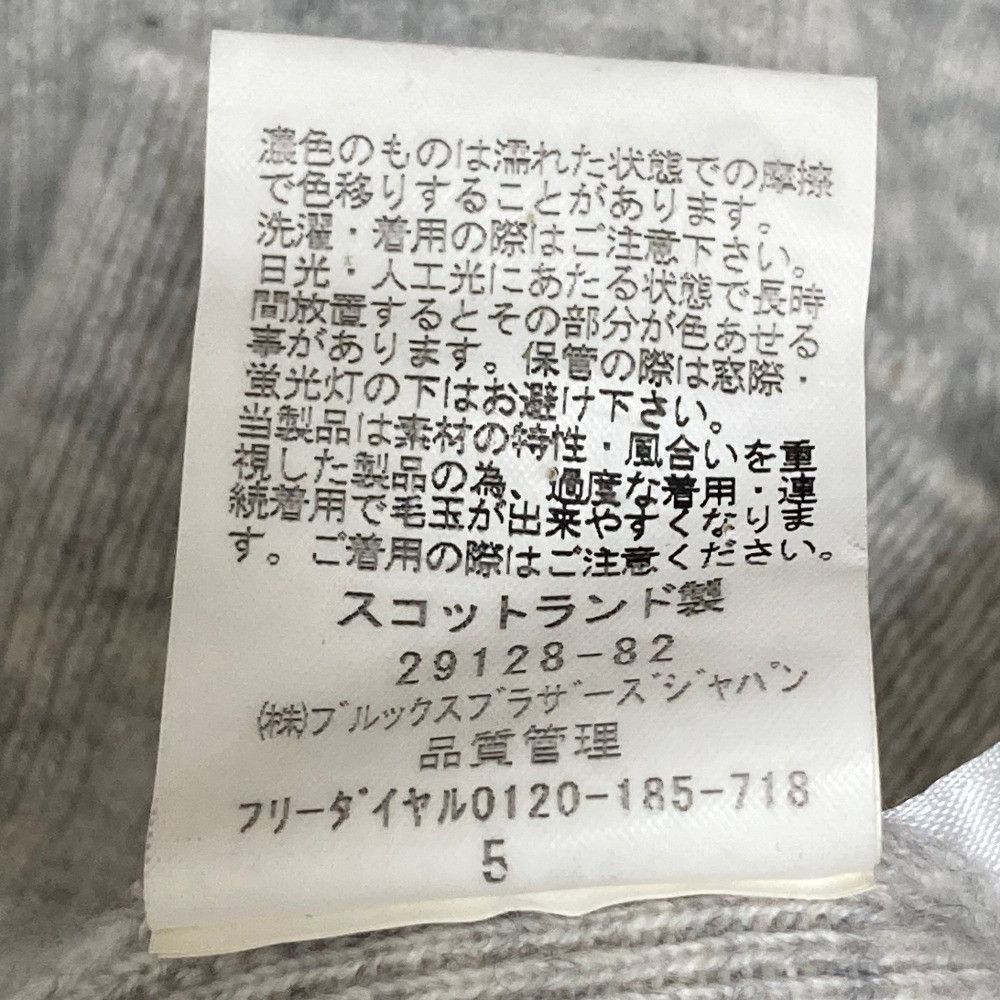 濃色のものは濡れた状態での摩擦
で色移りすることがあります。
洗濯・着用の際はご注意下さい。
日光・人工光にあたる状態で長時
間放置するとその部分が色あせる
事があります。保管の際は窓際・
蛍光灯の下はお避け下さい。
当製品は素材の特性・風合いを重
視した製品の為、過度な着用・連
続着用で毛玉が出来やすくなりま
す。ご着用の際はご注意ください。
スコットランド製
29128-82
㈱ブルックスブラザーズジャパン
品質管理
フリーダイヤル0120-185-718
5